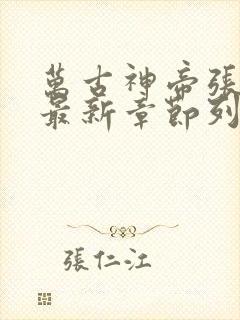 萬古神帝張
最新章節列
張仁江